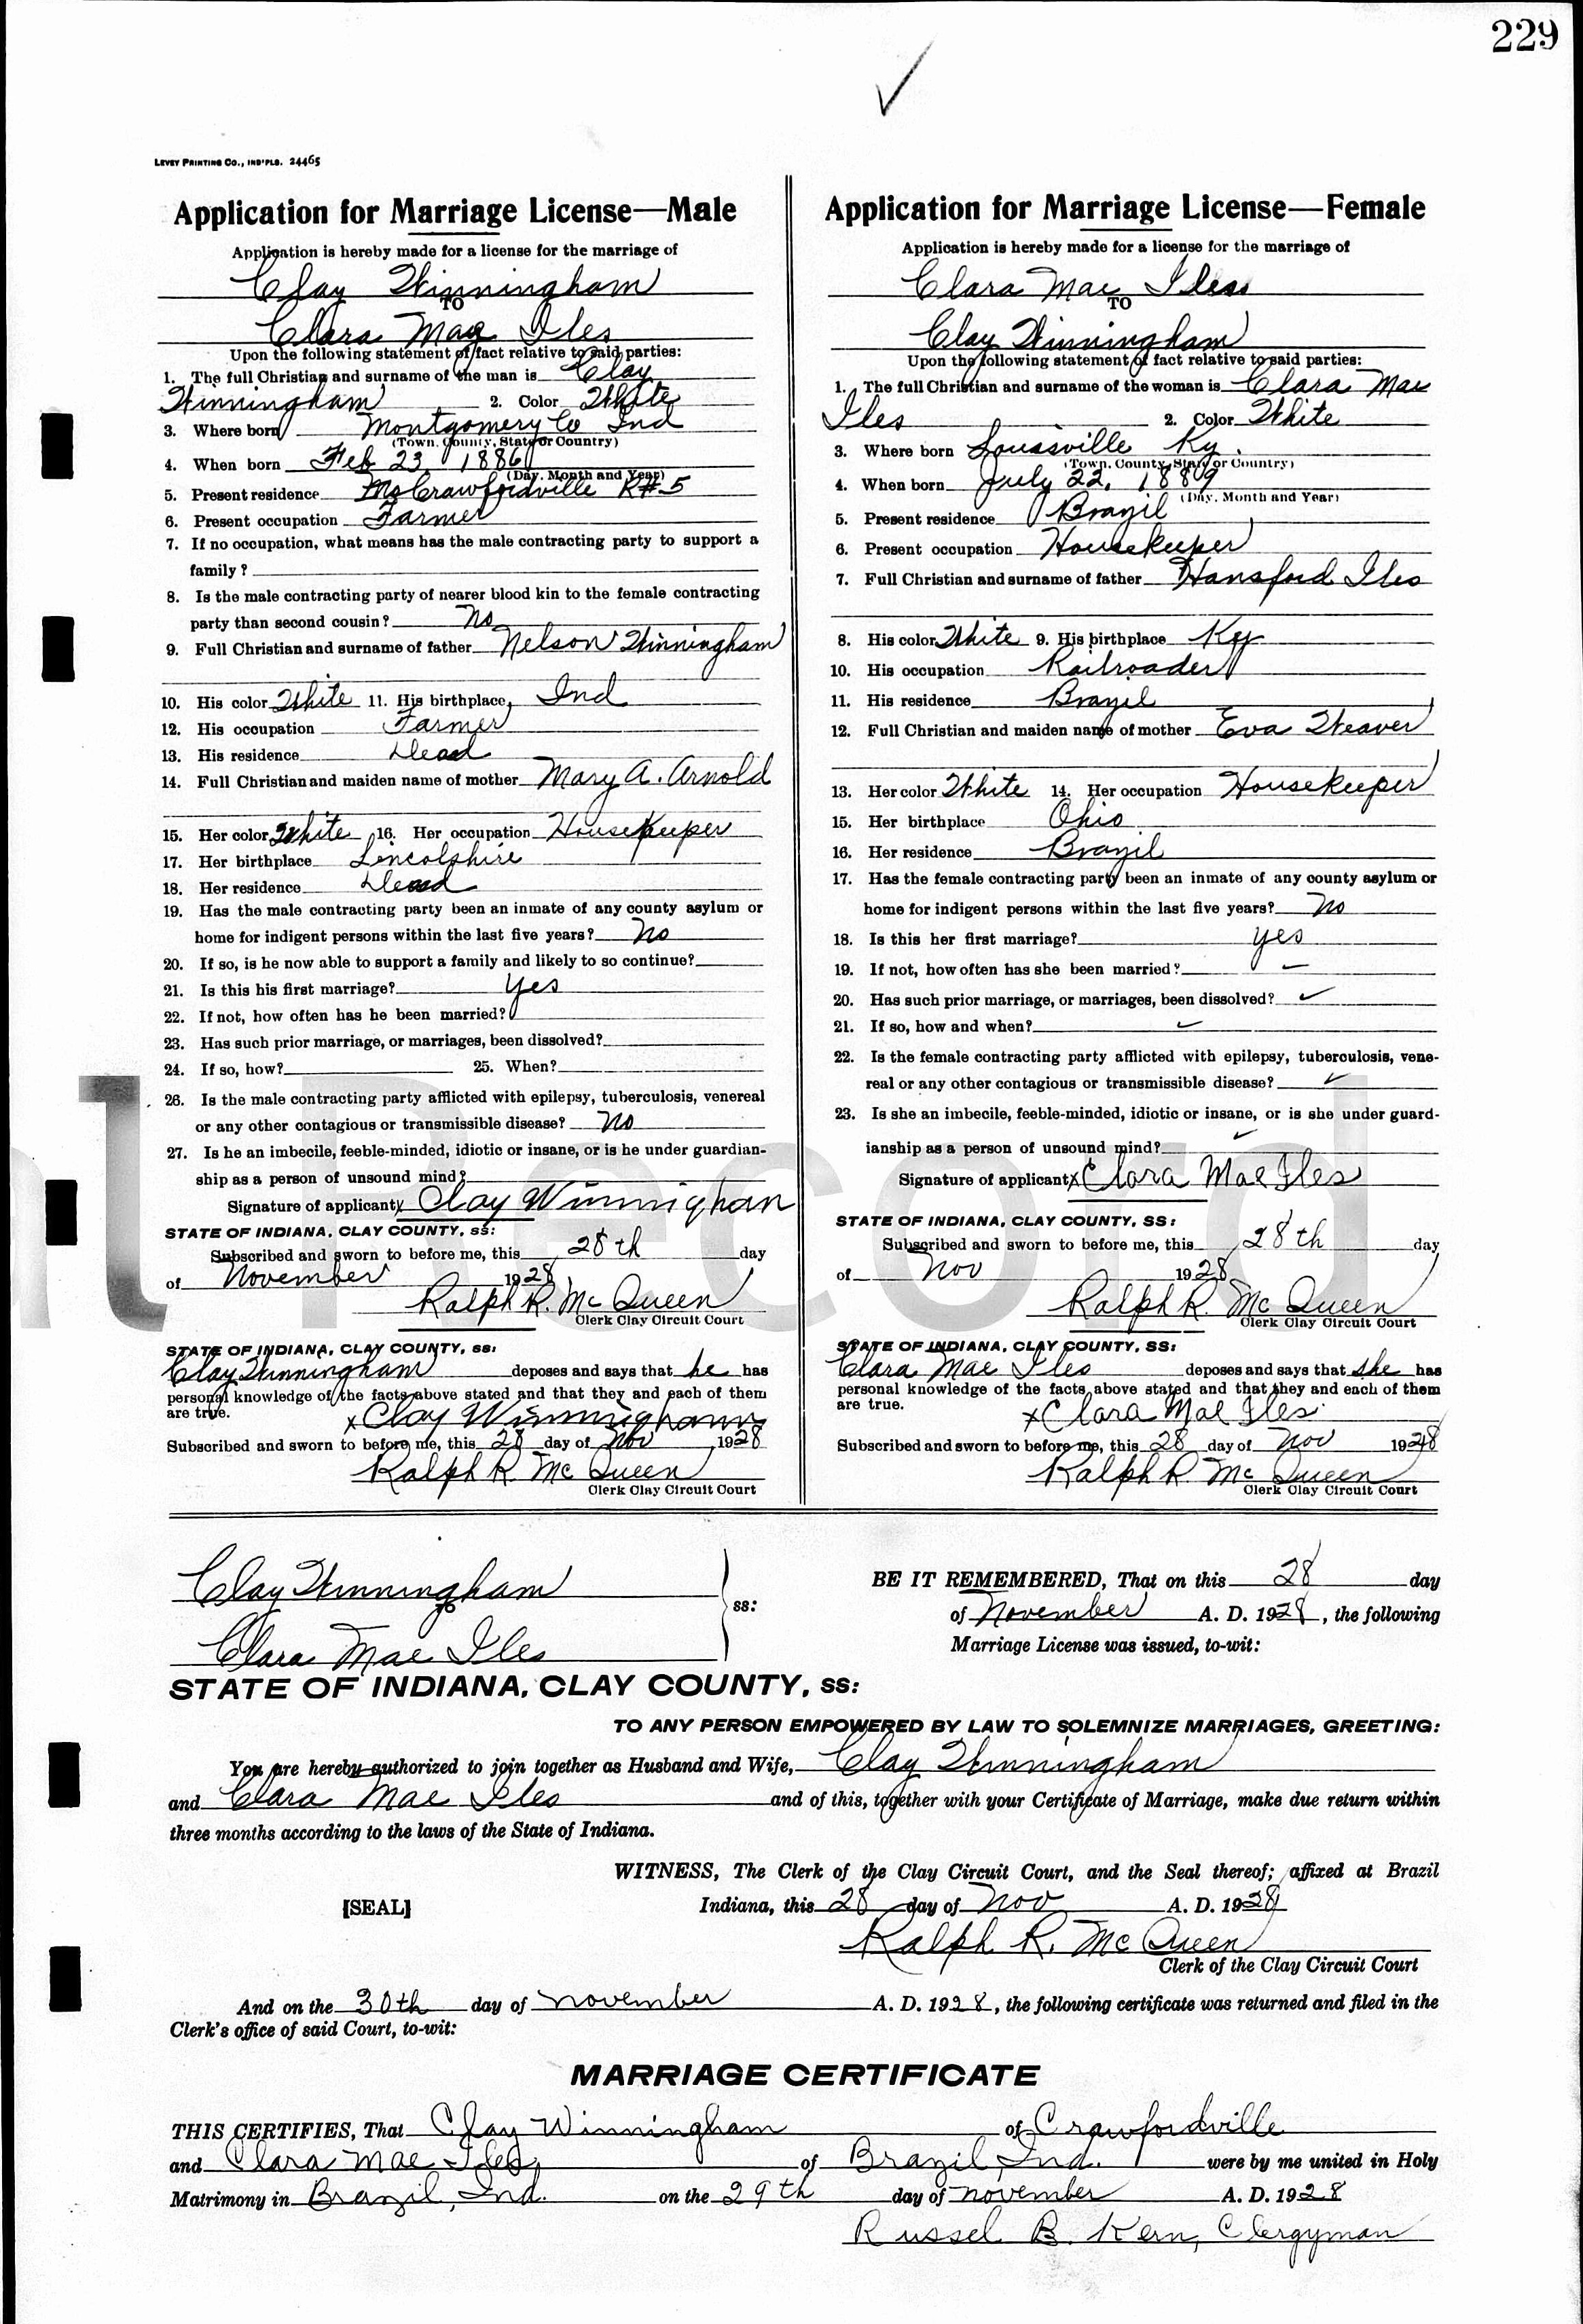 229
LEVEY PRINTING CO., IND'PLS. 24465
Application for Marriage License—Male
Application is hereby made for a license for the marriage of
Clay Winningham
TO
Clara Mae Iles
Upon the following statement of fact relative to said parties:
1. The full Christian and surname of the man is Clay
Winningham 2. Color White
3. Where born Montgomery Co Ind
(Town, County, State or Country)
4. When born Feb 23 1886
(Day, Month and Year)
5. Present residence Crawfordville R#5
6. Present occupation Farmer
7. If no occupation, what means has the male contracting party to support a
family?
8. Is the male contracting party of nearer blood kin to the female contracting
party than second cousin? No
9. Full Christian and surname of father Nelson Winningham
10. His color White 11. His birthplace Ind
12. His occupation Farmer
13. His residence Dead
14. Full Christian and maiden name of mother Mary A. Arnold
15. Her color White 16. Her occupation Housekeeper
17. Her birthplace Lincolshire
18. Her residence Dead
19. Has the male contracting party been an inmate of any county asylum or
home for indigent persons within the last five years? No
20. If so, is he now able to support a family and likely to so continue?
21. Is this his first marriage? Yes
22. If not, how often has he been married?
23. Has such prior marriage, or marriages, been dissolved?
24. If so, how? 25. When?
26. Is the male contracting party afflicted with epilepsy, tuberculosis, venereal
or any other contagious or transmissible disease? No
27. Is he an imbecile, feeble-minded, idiotic or insane, or is he under guardian-
ship as a person of unsound mind?
Signature of applicant x Clay Winnighan
STATE OF INDIANA, CLAY COUNTY, SS:
Subscribed and sworn to before me, this 28th day
of November 1928
Ralph R. McQueen
Clerk Clay Circuit Court
STATE OF INDIANA, CLAY COUNTY, SS:
Clay Winningham deposes and says that he has
personal knowledge of the facts above stated and that they and each of them
are true.
x Clay Winningham
Subscribed and sworn to before me, this 28 day of Nov 1928
Ralph R McQueen
Clerk Clay Circuit Court
Application for Marriage License—Female
Application is hereby made for a license for the marriage of
Clara Mae Iles
TO
Clay Winningham
Upon the following statement of fact relative to said parties:
1. The full Christian and surname of the woman is Clara Mae
Iles 2. Color White
3. Where born Louisville Ky.
(Town, County, State or Country)
4. When born July 22, 1889
(Day, Month and Year)
5. Present residence Brazil
6. Present occupation Housekeeper
7. Full Christian and surname of father Hansford Iles
8. His color White 9. His birthplace Ky
10. His occupation Railroader
11. His residence Brazil
12. Full Christian and maiden name of mother Eva Weaver
13. Her color White 14. Her occupation Housekeeper
15. Her birthplace Ohio
16. Her residence Brazil
17. Has the female contracting party been an inmate of any county asylum or
home for indigent persons within the last five years? No
18. Is this her first marriage? yes
19. If not, how often has she been married?
20. Has such prior marriage, or marriages, been dissolved?
21. If so, how and when?
22. Is the female contracting party afflicted with epilepsy, tuberculosis, vene-
real or any other contagious or transmissible disease?
23. Is she an imbecile, feeble-minded, idiotic or insane, or is she under guard-
ianship as a person of unsound mind?
Signature of applicant x Clara Mae Iles
STATE OF INDIANA, CLAY COUNTY, SS:
Subscribed and sworn to before me, this 28th day
of Nov 1928
Ralph R. McQueen
Clerk Clay Circuit Court
STATE OF INDIANA, CLAY COUNTY, SS:
Clara Mae Iles deposes and says that she has
personal knowledge of the facts above stated and that they and each of them
are true.
x Clara Mae Iles
Subscribed and sworn to before me, this 28 day of Nov 1928
Ralph R. McQueen
Clerk Clay Circuit Court
Clay Winningham
to
Clara Mae Iles
ss:
BE IT REMEMBERED, That on this 28 day
of November A. D. 1928, the following
Marriage License was issued, to-wit:
STATE OF INDIANA, CLAY COUNTY, SS:
TO ANY PERSON EMPOWERED BY LAW TO SOLEMNIZE MARRIAGES, GREETING:
You are hereby authorized to join together as Husband and Wife, Clay Winningham
and Clara Mae Iles and of this, together with your Certificate of Marriage, make due return within
three months according to the laws of the State of Indiana.
WITNESS, The Clerk of the Clay Circuit Court, and the Seal thereof; affixed at Brazil
[SEAL] Indiana, this 28 day of Nov A. D. 1928
Ralph R. McQueen
Clerk of the Clay Circuit Court
And on the 30th day of November A. D. 1928, the following certificate was returned and filed in the
Clerk's office of said Court, to-wit:
MARRIAGE CERTIFICATE
THIS CERTIFIES, That Clay Winningham of Crawfordville
and Clara Mae Iles, of Brazil, Ind. were by me united in Holy
Matrimony in Brazil, Ind. on the 29th day of November A. D. 1928
Russel B. Kern, Clergyman